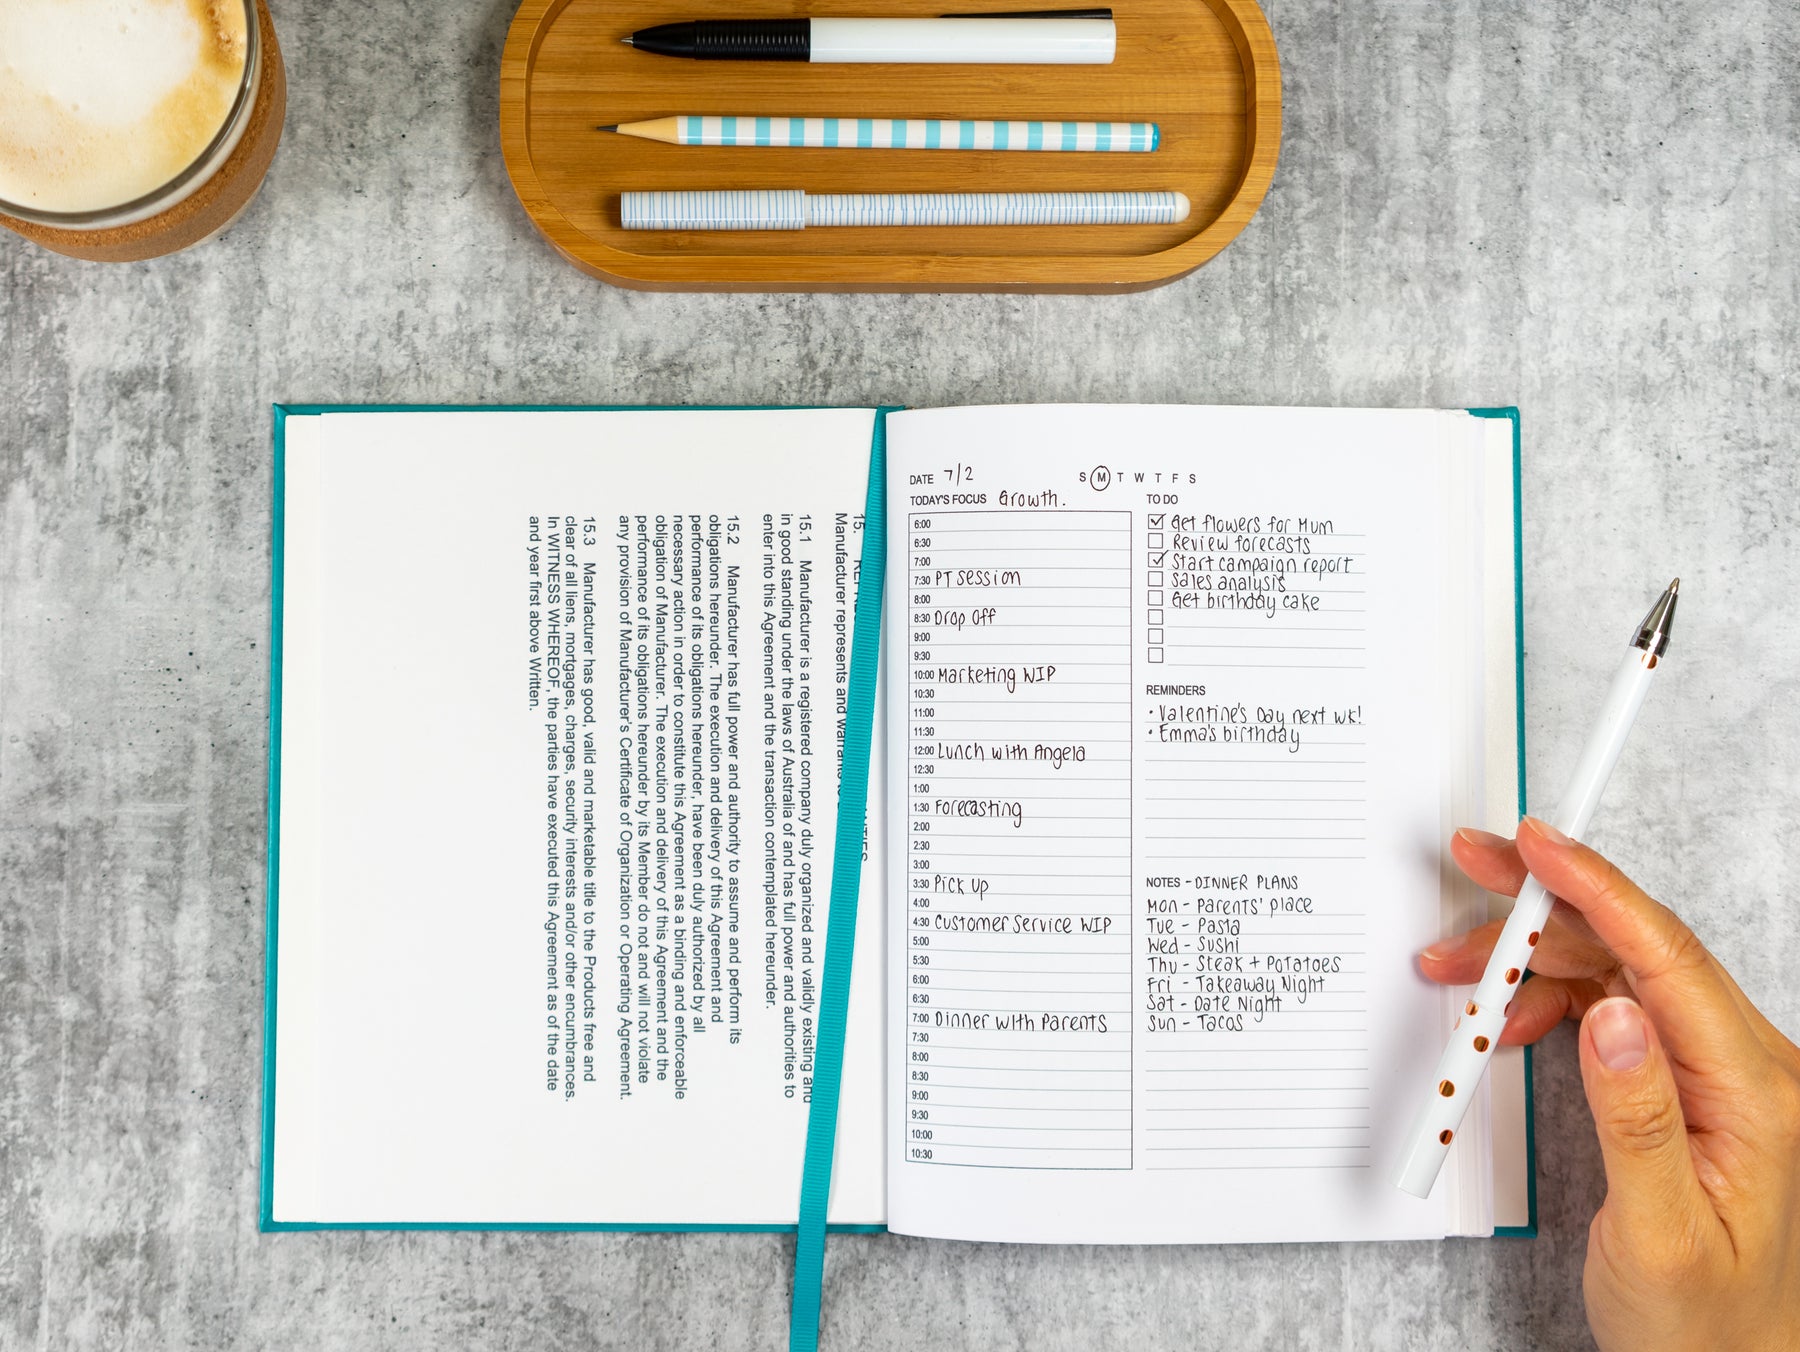 15.
Manufacturer represents and warrants
15.1 Manufacturer is a registered company duly organized and validly existing and
in good standing under the laws of Australia of and has full power and authorities to
enter into this Agreement and the transaction contemplated hereunder.
15.2 Manufacturer has full power and authority to assume and perform its
obligations hereunder. The execution and delivery of this Agreement and
performance of its obligations hereunder, have been duly authorized by all
necessary action in order to constitute this Agreement as a binding and enforceable
obligation of Manufacturer. The execution and delivery of this Agreement and the
performance of its obligations hereunder by its Member do not and will not violate
any provision of Manufacturer's Certificate of Organization or Operating Agreement.
15.3 Manufacturer has good, valid and marketable title to the Products free and
clear of all liens, mortgages, charges, security interests and/or other encumbrances.
In WITNESS WHEREOF, the parties have executed this Agreement as of the date
and year first above Written.
DATE 7/2
S M T W T F S
TODAY'S FOCUS Growth.
6:00
6:30
7:00
7:30 PT session
8:00
8:30 Drop Off
9:00
9:30
10:00 Marketing WIP
10:30
11:00
11:30
12:00 Lunch with Angela
12:30
1:00
1:30 Forecasting
2:00
2:30
3:00
3:30 Pick Up
4:00
4:30 Customer Service WIP
5:00
5:30
6:00
6:30
7:00 Dinner with Parents
7:30
8:00
8:30
9:00
9:30
10:00
10:30
TO DO
Get flowers for Mum
Review forecasts
Start campaign report
Sales analysis
Get birthday cake
REMINDERS
• Valentine's Day next wk!
• Emma's birthday
NOTES - DINNER PLANS
Mon - Parents' place
Tue - Pasta
Wed - Sushi
Thu - Steak + Potatoes
Fri - Takeaway Night
Sat - Date Night
Sun - Tacos